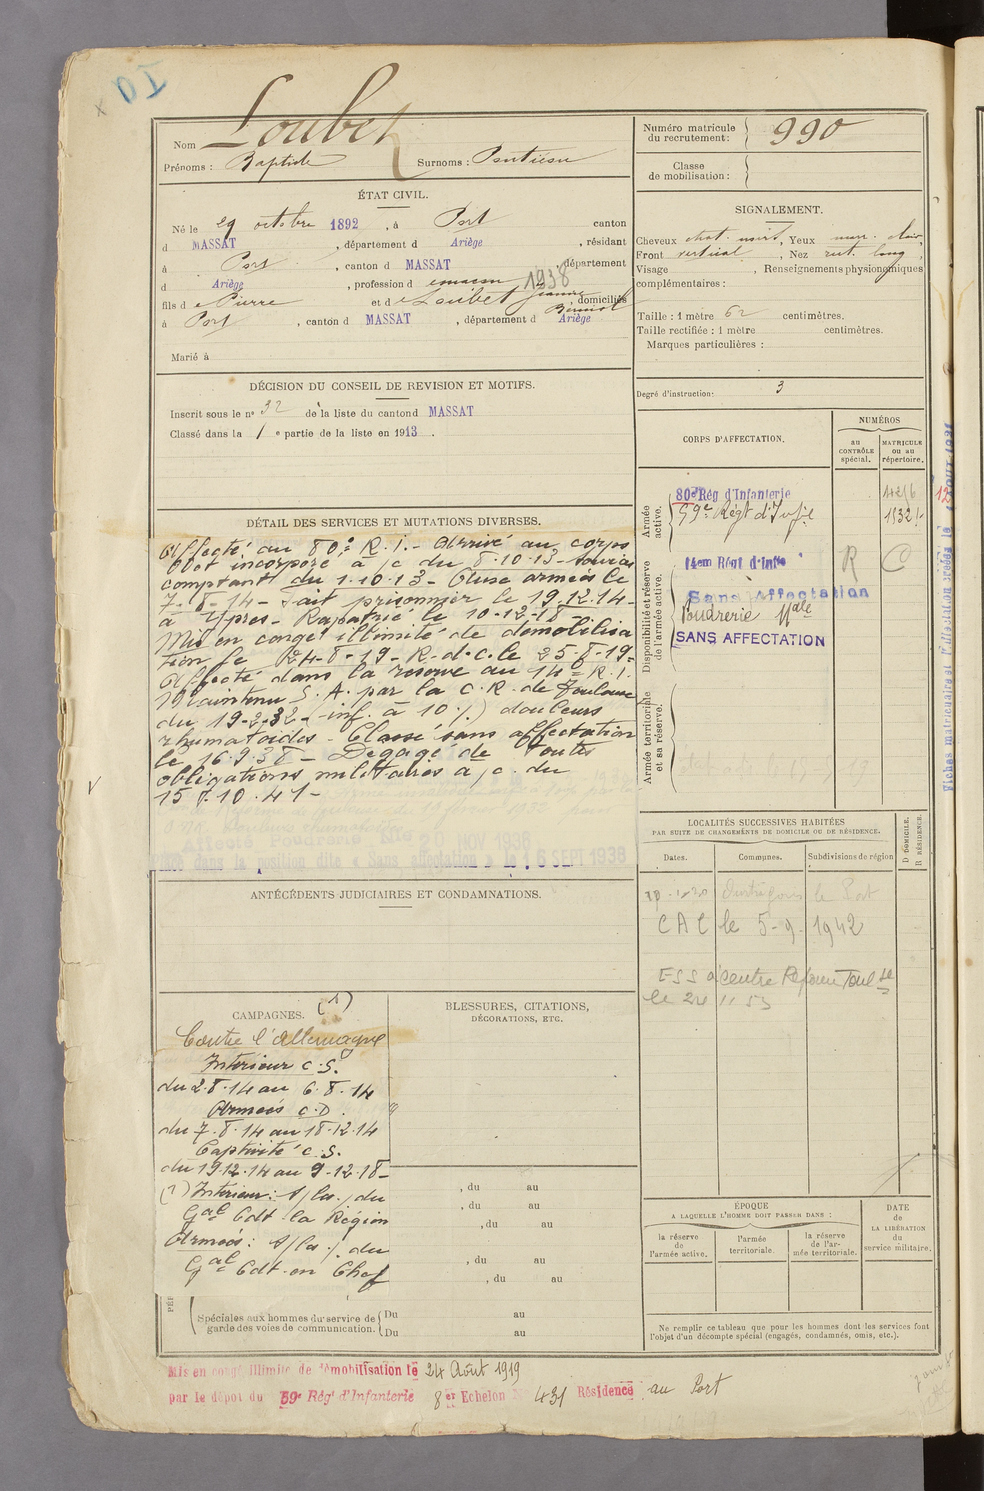 DI
Nom Loubet
Prénoms : Baptiste Surnoms :
Numéro matricule du recrutement: 990
Classe de mobilisation :
ÉTAT CIVIL.
Né le 29 octobre 1892, à Port canton
d MASSAT, département d Ariège, résidant
à Port, canton d MASSAT, département
d Ariège, profession d 1938
fils de Pierre et de Loubet Jeanne, domiciliés
à Port, canton d MASSAT, département d Ariège
Marié à
SIGNALEMENT.
Cheveux chat. , Yeux mar. clair,
Front vertical, Nez rect. long,
Visage , Renseignements physionomiques
complémentaires :
Taille : 1 mètre 62 centimètres.
Taille rectifiée : 1 mètre centimètres.
Marques particulières :
Degré d'instruction: 3
DÉCISION DU CONSEIL DE REVISION ET MOTIFS.
Inscrit sous le n° 32 de la liste du canton d MASSAT
Classé dans la 1 e partie de la liste en 1913.
DÉTAIL DES SERVICES ET MUTATIONS DIVERSES.
Affecté au 80e R.I. - Arrivé au corps
et incorporé à /c du 8.10.13 - Service
comptant du 1.10.13 - Aux armées le
7-8-14 - Fait prisonnier le 19.12.14 -
à Ypres - Rapatrié le 10-12-18 -
Mis en congé illimité de démobilisa
tion le 24-8-19 - R.d.c. le 25-8-19 -
Affecté dans la réserve au 14e R.I.
Maintenu S.A. par la C.R. de Toulouse
du 19-2-32 - (inf. à 10 %) douleurs
rhumatoïdes - Classé sans affectation
le 16.9.38 - Dégagé de toutes
obligations militaires à /c du
15.10.41 -
Affecté Poudrerie Nle 20 NOV 1938
dans la position dite « Sans affectation » le 16 SEPT 1938
CORPS D'AFFECTATION.
NUMÉROS
au CONTRÔLE spécial.
MATRICULE ou au répertoire.
Armée active.
80e Rég d'Infanterie
59e Régt d'Infie
Disponibilité et réserve de l'armée active.
14em Régt d'Inftie R C
Sans Affectation
Poudrerie Nale
SANS AFFECTATION
Armée territoriale et sa réserve.
LOCALITÉS SUCCESSIVES HABITÉES
PAR SUITE DE CHANGEMENTS DE DOMICILE OU DE RÉSIDENCE.
Dates. Communes. Subdivisions de région
D DOMICILE. R RÉSIDENCE.
le Port
CAC le 5-9-1942
ESS à centre Réforme Toulse
le 24 11 53
ANTÉCÉDENTS JUDICIAIRES ET CONDAMNATIONS.
CAMPAGNES. (1)
Contre l'Allemagne
Intérieur C.S.
du 2.8.14 au 6.8.14
Armées C.D.
du 7.8.14 au 18.12.14
Captivité C.S.
du 19.12.14 au 9.12.18 -
(1) Intérieur : du
Gal Cdt la Région
Armées : du
Gal Cdt en Chef
BLESSURES, CITATIONS,
DÉCORATIONS, ETC.
, du au
, du au
, du au
, du au
, du au
Spéciales aux hommes du service de garde des voies de communication.
Du au
Du au
ÉPOQUE
A LAQUELLE L'HOMME DOIT PASSER DANS :
la réserve de l'armée active.
l'armée territoriale.
la réserve de l'armée territoriale.
DATE de LA LIBÉRATION du service militaire.
Ne remplir ce tableau que pour les hommes dont les services font
l'objet d'un décompte spécial (engagés, condamnés, omis, etc.).
Mis en congé illimité de démobilisation le 24 Août 1919
par le dépôt du 59e Rég d'Infanterie 8er Echelon N° 431 Résidence au Port